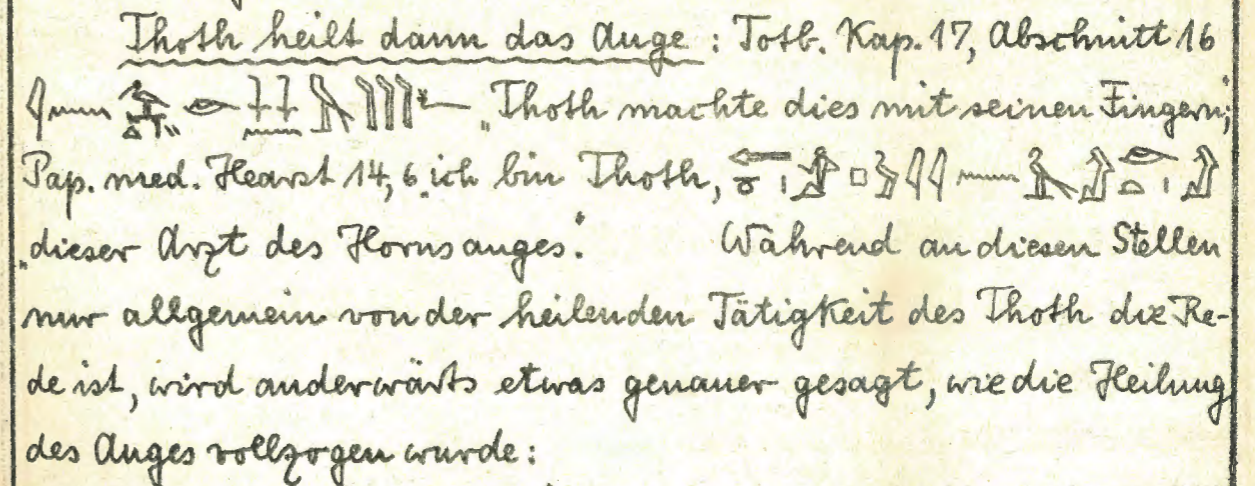 Thoth heilt dann das Auge : Totb. Kap. 17, Abschnitt 16
„Thoth machte dies mit seinen Fingern“;
Pap. med. Hearst 14,6 „ich bin Thoth,
„dieser Arzt des Horusauges“. Während an diesen Stellen
nur allgemein von der heilenden Tätigkeit des Thoth die Re-
de ist, wird anderwärts etwas genauer gesagt, wie die Heilung
des Auges vollzogen wurde :